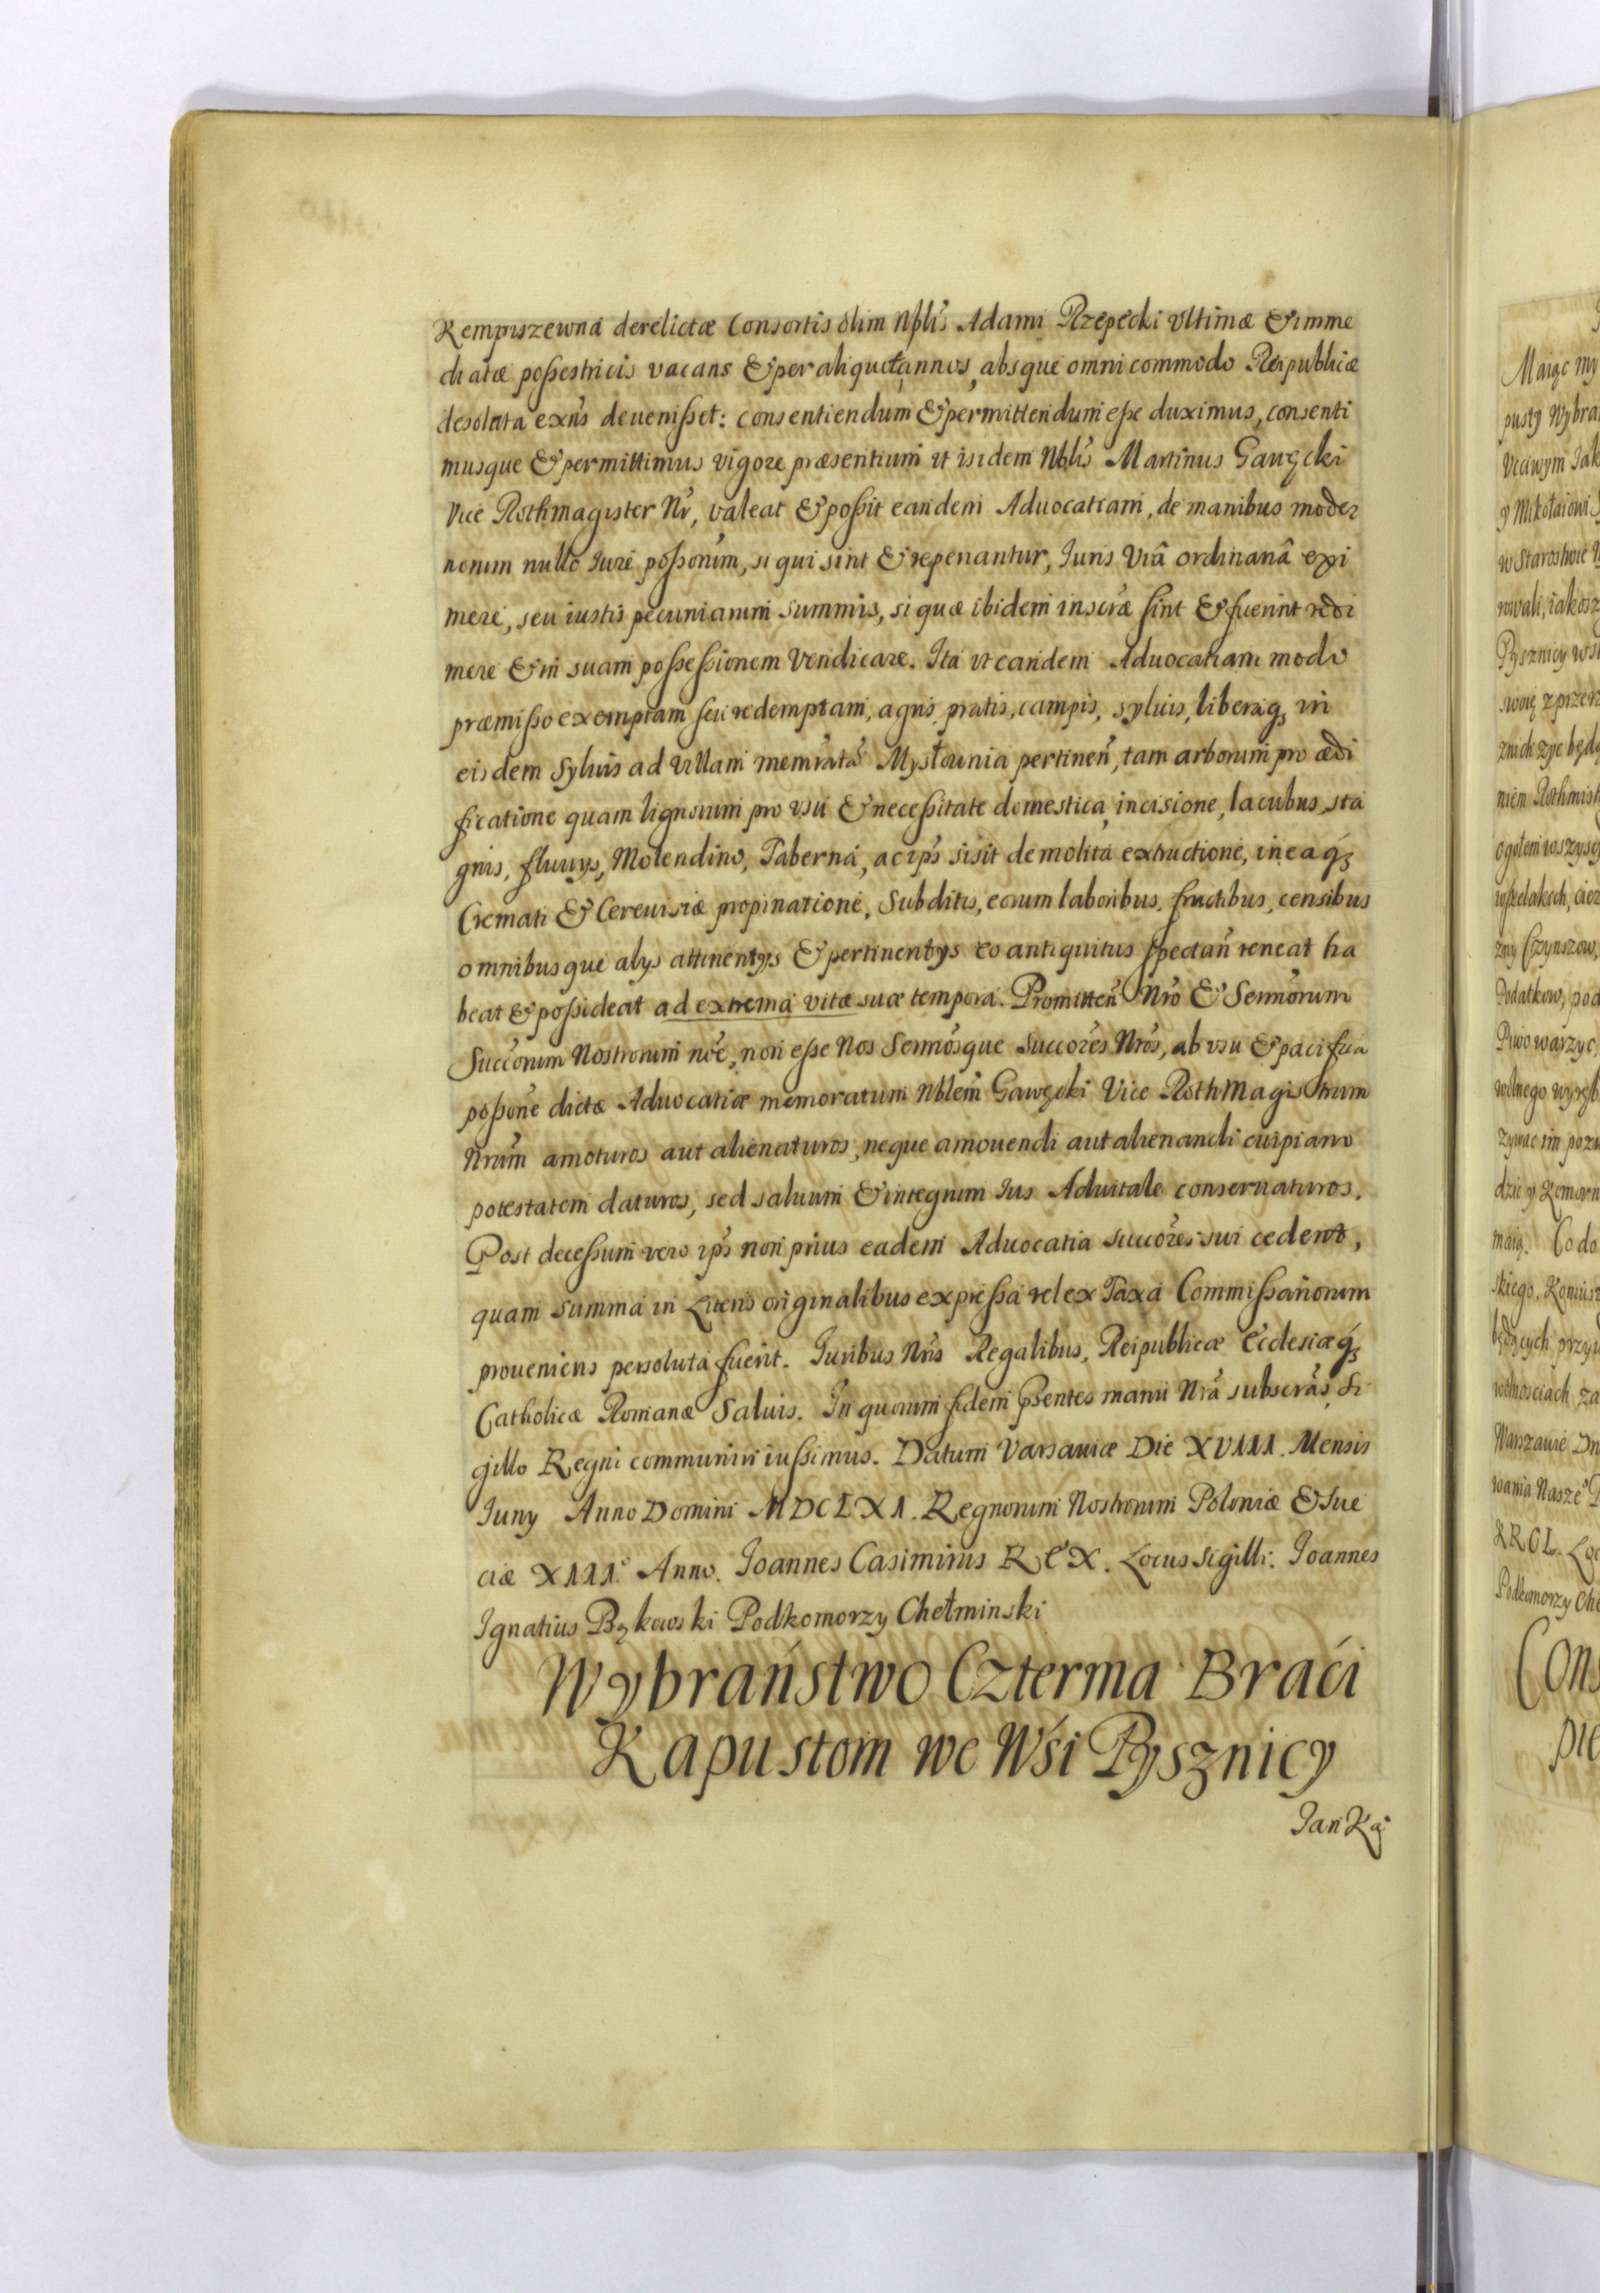 Rempiszewna derelictæ Consortis olim Nbl̃is Adami Rzepecki Vltimæ & imme
diatæ poßestricis vacans & per aliquot annos, absque omni commodo Reipublicæ
desolata exñs deuenißet: consentiendum & permittendum eße duximus, consenti
musque & permittimus vigore præsentium vt isidem Nblis Martinus Gawęcki
Vice Rothmagister Nr, valeat & poßit eandem Aduocatiam, de manibus moder
norum nullo Iure poßorum, si qui sint & reperiantur, Iuris Viâ ordinariâ exi
mere, seu iustis pecuniarum summis, si quæ ibidem inscræ sint & fuerint redi
mere & in suam poßeßionem vendicare. Ita vt eandem Aduocatiam modo
præmißo exemptam seu redemptam, agris, pratis, campis, syluis, liberaq; in
eisdem syluis ad villam memratã Mysłownia pertineñ, tam arborum pro ædi
ficatione quam lignorum pro vsu & neceßitate domestica, incisione, lacubus, sta
gnis, fluuys, Molendino, Taberna, ac ip̃s si sit demolita extructione, in eaq;
Cremati & Cereuisiæ propinatione, Subditis, eorum laboribus, fructibus, censibus
omnibusque alys attinentys & pertinentys eo antiquitus spectañ teneat ha
beat & poßideat ad extrema vitæ suæ tempora. Promitteñ Nro & Sermõrum
Succorum Nostrorum noẽ, non eße Nos Sermõsque Succorẽs Nros, ab vsu & pacifica
poßone dictæ Aduocatiæ memoratum Nblem Gawęcki Vice RothMagistrum
Nrum amoturos aut alienaturos, neque amouendi aut alienandi cuipiam
potestatem daturos, sed saluum & integrum Ius Aduitale conseruaturos.
Post deceßum vero ip̃s non prius eadem Aduocatia succorẽs sui cedent,
quam summa in Literis originalibus expreßa vel ex Taxa Commißariorum
proueniens persoluta fuerit. Iuribus Nris Regalibus, Reipublicæ Ecclesiæq;
Catholicæ Romanæ Saluis. In quorum fidem p̃sentes manu Nra subscrãs, Si
gillo Regni communiri iußimus. Datum Varsauiæ Die XVIII. Mensis
Iuny Anno Domini MDCLXI. Regnorum Nostrorum Poloniæ & Sue
ciæ XIII.° Anno. Ioannes Casimirus REX. Locus Sigilli. Ioannes
Ignatius Bąkowski Podkomorzy Chełminski
Wybraństwo Czterma Braći
Kapustom we Wśi Pysznicy
Jan Ka
Maiąc my
pusty Wybra
Vcciwym Jak
y Mikołaiowi
w Starostwie
rowali, iakosz
Pysznicy
swoię z przer
znich zyc będą
niem Rothmist
ogołem wszyscy
wszelakich, cię
zny Czynszow,
Podatkow, pod
Piwo warzyc,
wolnego wyręb
zywac im pozw
dzie y Komorn
maią. Co do
skiego, Konius
będących przy
wolnosciach za
Warszawie Dn
wania Nasze°
KRGL. Loc
Podkomorzy Che
Cons
pie